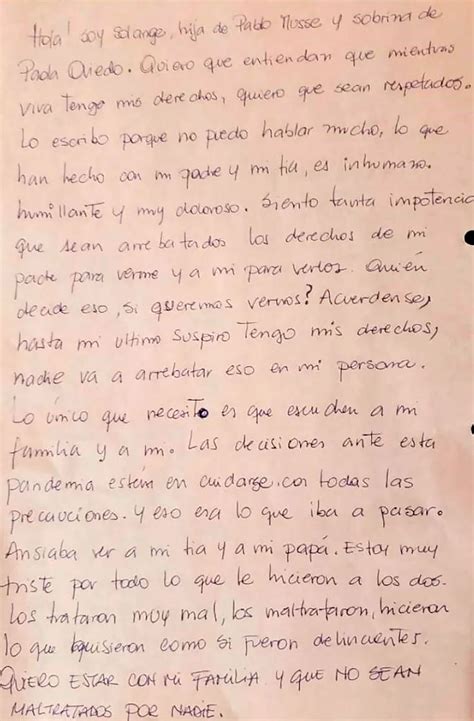 Hola! soy Solange, hija de Pablo Musse y sobrina de
Paola Oviedo. Quiero que entiendan que mientras
viva tengo mis derechos, quiero que sean respetados.
Lo escribo porque no puedo hablar mucho, lo que
han hecho con mi padre y mi tia, es inhumano.
humillante y muy doloroso. Siento tanta impotencia
que sean arrebatados los derechos de mi
padre para verme y a mi para verlos. Quién
decide eso, si queremos vernos? Acuerdense,
hasta mi ultimo suspiro tengo mis derechos,
nadie va a arrebatar eso en mi persona.
Lo único que necesito es que escuchen a mi
familia y a mi. Las decisiones ante esta
pandemia están en cuidarse con todas las
precauciones. Y eso era lo que iba a pasar.
Ansiaba ver a mi tia y a mi papá. Estoy muy
triste por todo lo que le hicieron a los dos.
Los trataron muy mal, los maltrataron, hicieron
lo que quisieron como si fueron delincuentes.
QUIERO ESTAR CON MI FAMILIA Y QUE NO SEAN
MALTRATADOS POR NADIE.